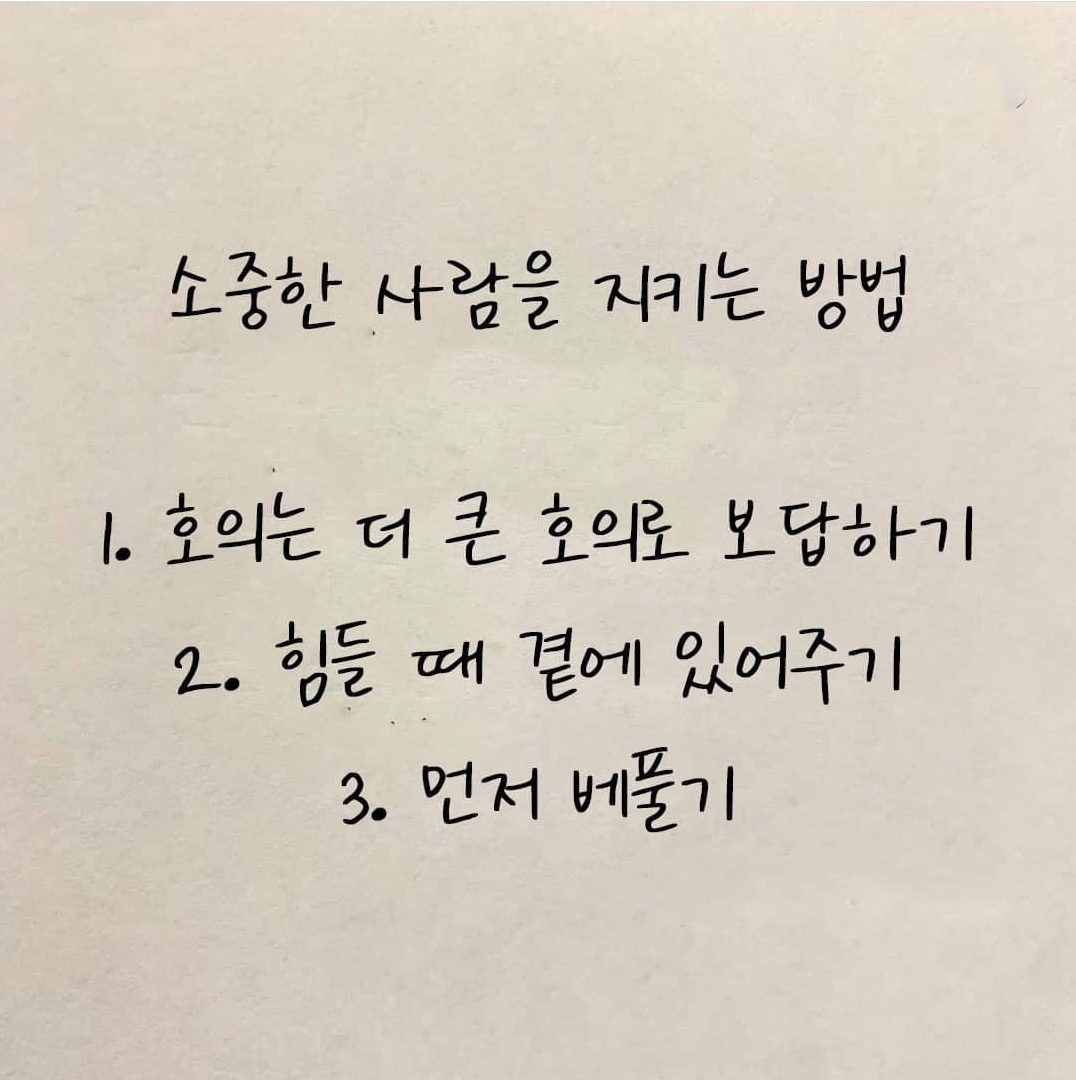 소중한 사람을 지키는 방법
1. 호의는 더 큰 호의로 보답하기
2. 힘들 때 곁에 있어주기
3. 먼저 베풀기